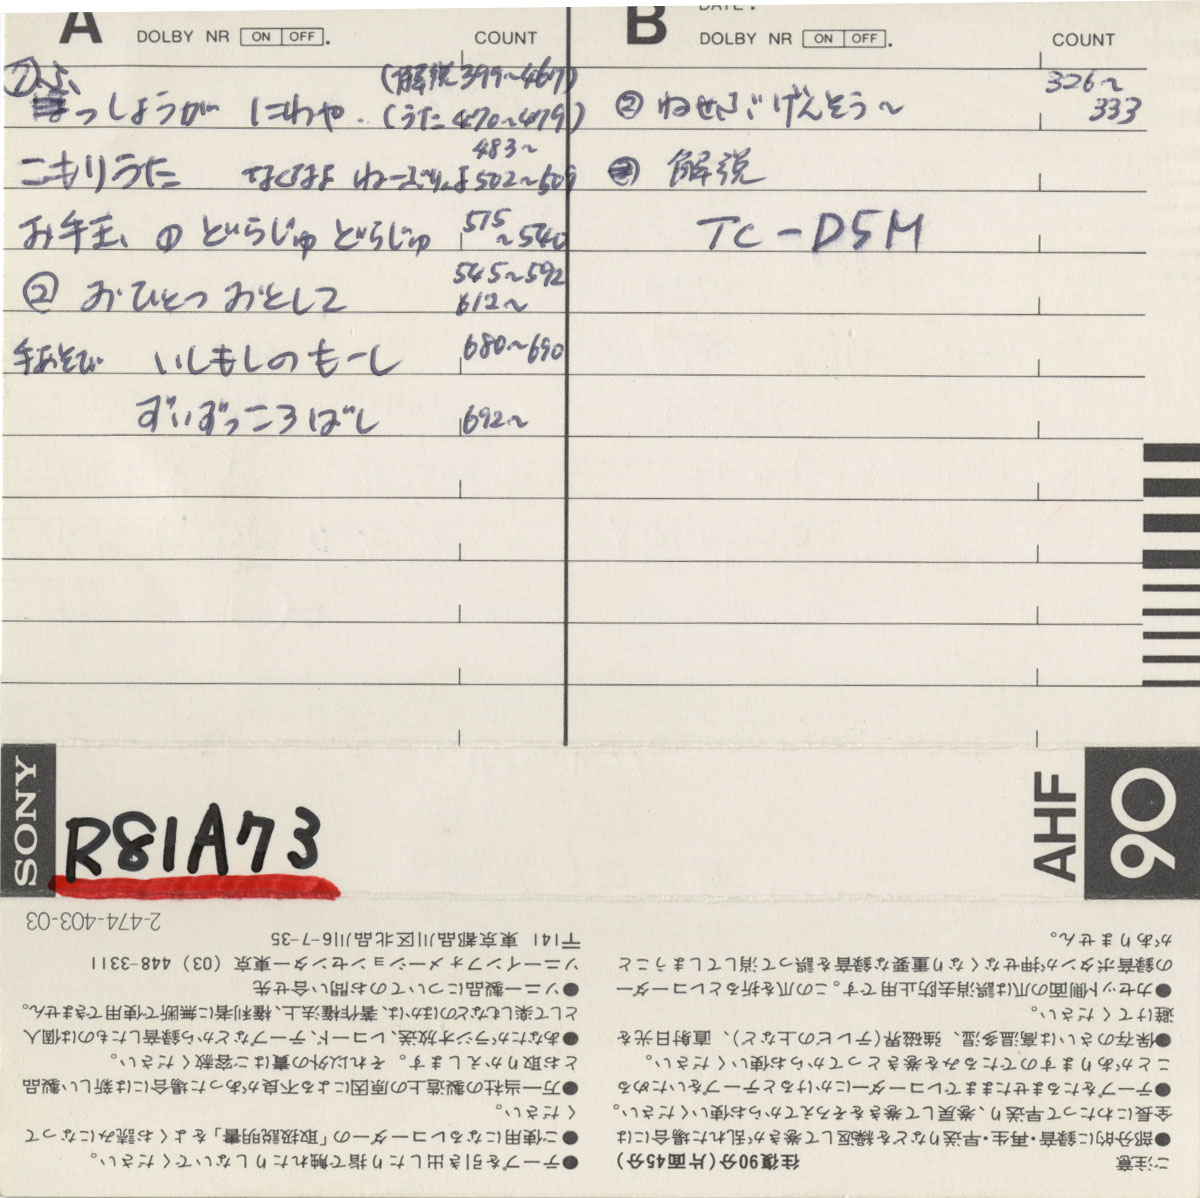 A DOLBY NR ON OFF. COUNT
① ふ (解説 399〜467)
っしょうがにわや. (うた 470〜479)
483〜
こもりうた なくなよ 502〜509
お手玉、の どうらじゅ どうらじゅ 575〜540
545〜592
② おひとつ おとして 612〜
手あそび いしもしのもーし 680〜690
ずいずっころばし 692〜
B DATE:
DOLBY NR ON OFF. COUNT
326〜
② ねせさご げんそう〜 333
解説
TC-D5M
SONY
R81A73
AHF
90
ご注意 往復90分(片面45分)
●部分的に録音・再生・早送りなどを繰返して巻きが乱れた場合には
全長にわたって早送り、巻戻して巻きをそろえてからお使いください。
●テープをたるませたままでレコーダーにかけるとテープをいためる
ことがありますのでたるみを巻きとってからお使いください。
●保存のさいは高温多湿、強磁界(テレビの上など)、直射日光を
避けてください。
●カセット側面の爪は誤消去防止用です。この爪を折るとレコーダー
の録音ボタンが押せなくなり重要な録音を誤って消してしまうこと
がありません。
●テープを引き出したり指で触れたりしないでください。
●ご使用になるレコーダーの「取扱説明書」をよくお読みになって
ください。
●万一当社の製造上の原因による不良があった場合には新しい製品
とお取りかえします。それ以外の責はご容赦ください。
●あなたがラジオ放送、レコード、テープなどから録音したものは個人
として楽しむなどのほかは、著作権法上、権利者に無断で使用できません。
●ソニー製品についてのお問い合せ先
ソニーインフォメーションセンター東京 (03) 448-3311
〒141 東京都品川区北品川6-7-35
2-474-403-03